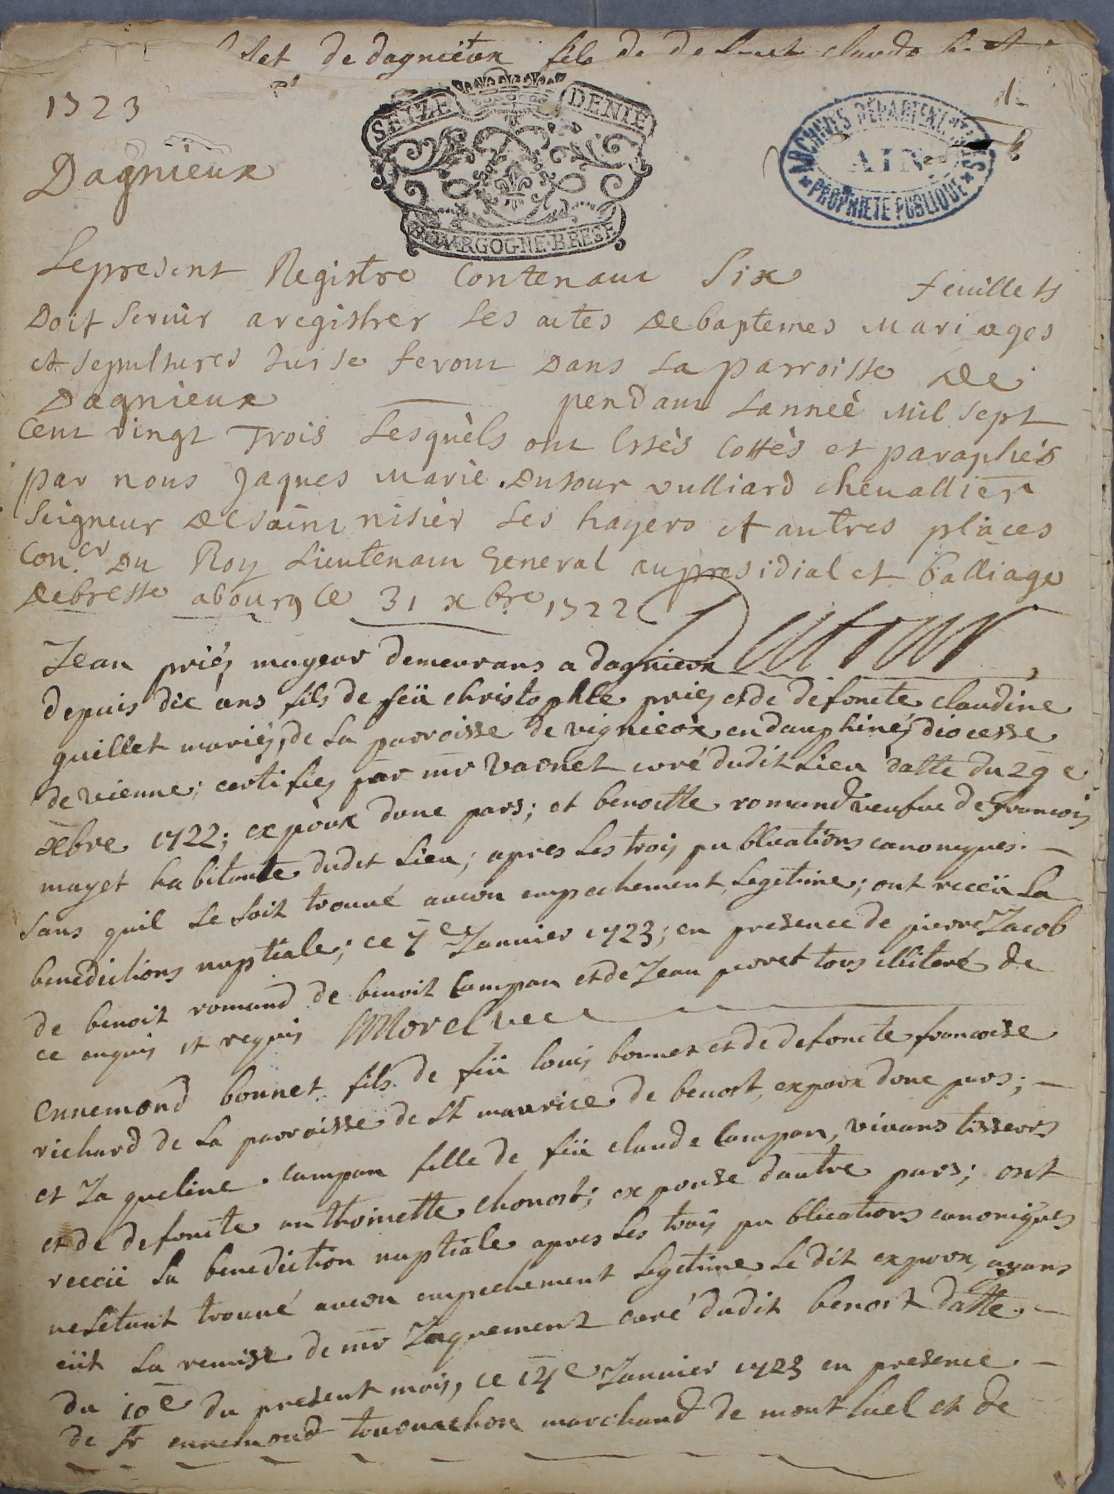 set de dagnieux fils de
1723
SEIZE DENIE
BOURGOGNE BRESE
ARCHIVES DEPARTEMENTALES
AIN
PROPRIETE PUBLIQUE
Dagnieux
Lepresent Registre Contenant Six feuillets
Doit servir aregistrer les actes Debaptemes Mariages
et sepultures qui se feront Dans La parroisse De
Dagnieux pendant Lanneé Mil Sept
Cent vingt Trois Lesquèls ont Estés Cottès et paraphés
par nous Jaques Marie Dutour vulliard chevallier
Seigneur De saint nisier Les hayers et autres places
Con.er Du Roy Lieutenant General aupresidial et balliage
Debresse abourg Ce 31 xbre 1722
Dutour
Jean priéz mayeur demeurans a dagnieux
depuis dix ans fils de feü christophle priez et de defoncte claudine
guillet mariéz, de La parroisse de vignieux en dauphiné, diocesse
de vienne; certifiez par mr varnet curé dudit Lieu datte du 29e
xbre 1722; expoux dune pars; et benoitte romand veufve de francois
mayet habitante dudit Lieu; apres Les trois publications canoniques.
Sans quil Se soit trouvé aucun empechement Legetime; ont receü La
benedictions nuptiale; ce 7e Janvier 1723; en presence de pierre Jacob
de benoit romand de benoit Campan et de Jean peret tous illiteré de
ce enquis et requis MMorel vic
Ennemond bonnet fils de feü louis bonnet et de defoncte francoise
richard de La parroisse de St maurice de benost, expoux dune pars;
et Jaqueline campan fille de feü claude Campan, vivans tisseurs
et de defoncte anthoinette chonost; expouse dautre pars; ont
receü La benediction nuptiale apres Les trois publications canoniques
ne Setant trouvé aucun empechement Legetime Le dit expoux ayans
eüt La remise de mr Jaquement curé dudit benost datte.
du 10e du present mois, ce 14e Janvier 1723 en presence
de Sr ennemond tournachon marchand de montluel et de